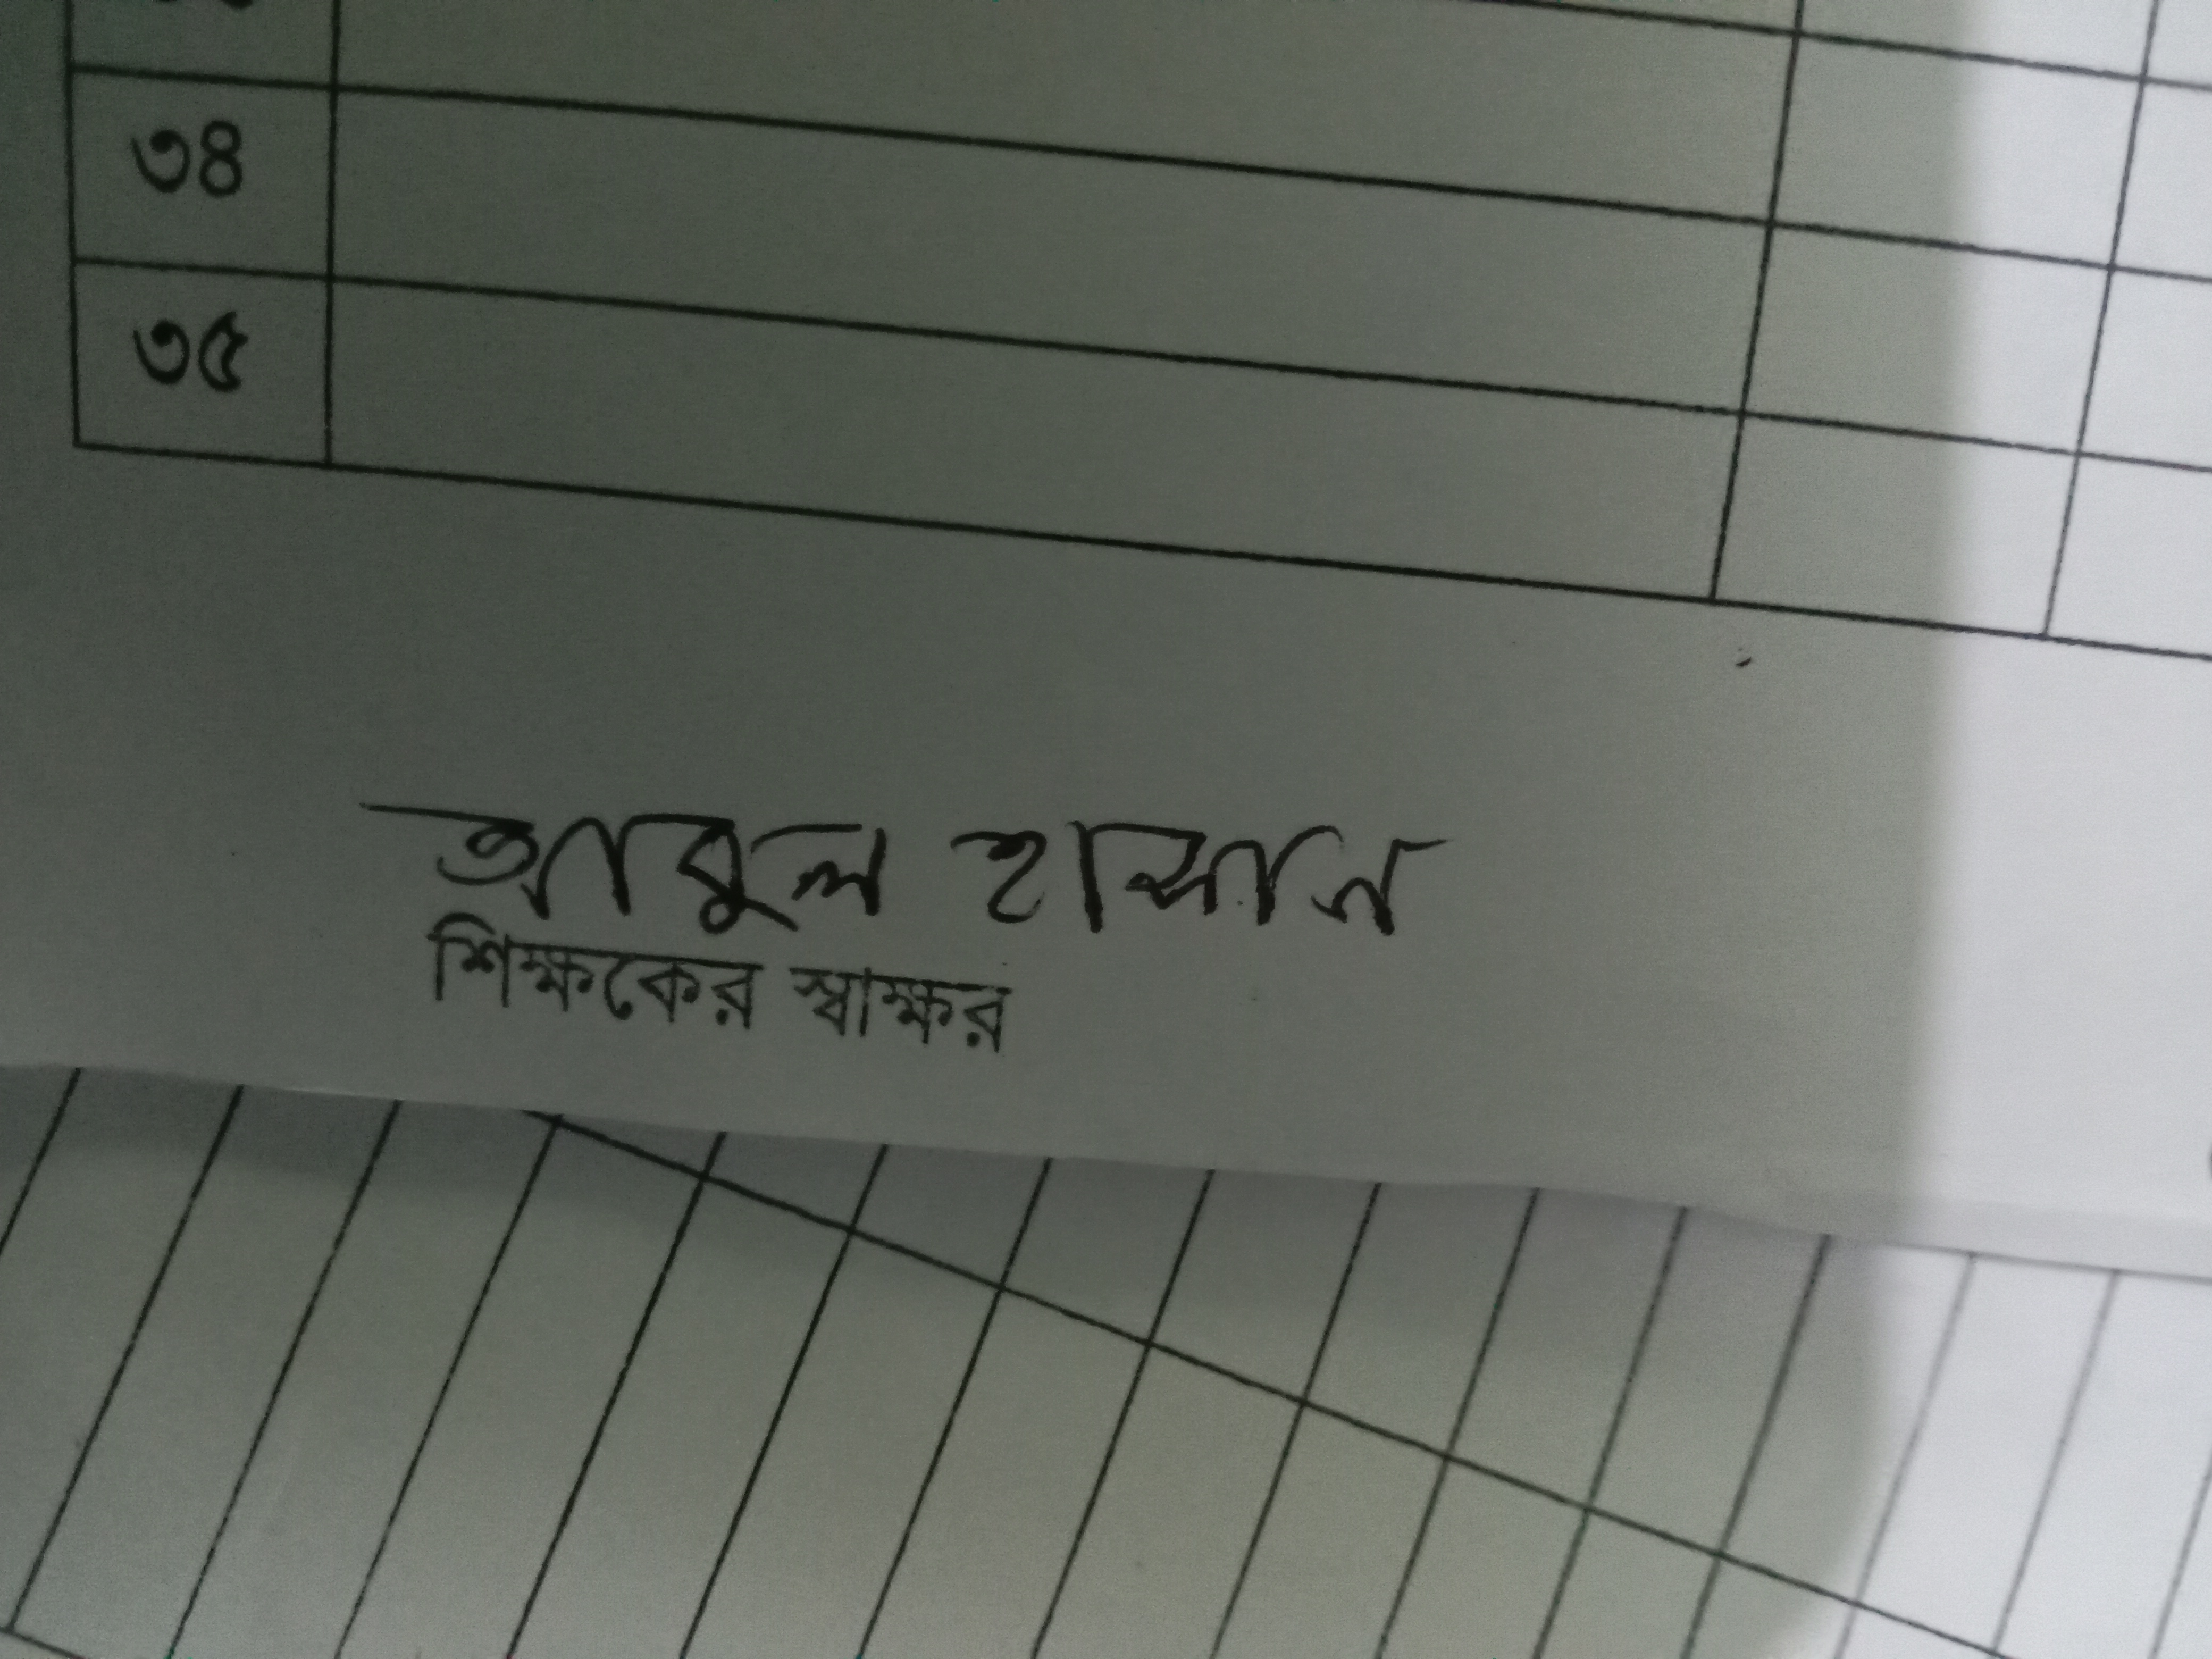 ৩৪
৩৫
আবুল হাসান
শিক্ষকের স্বাক্ষর